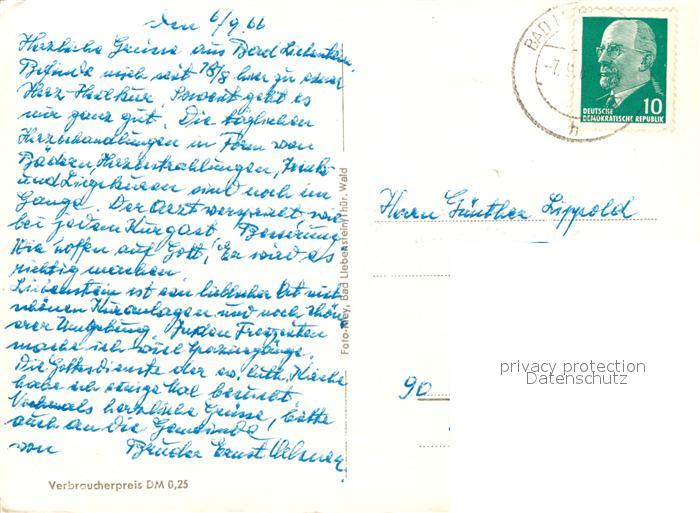 den 6/9.66
Herzliche Grüsse aus Bad Liebenstein.
Befinde mich seit 18/8 hier zu einer
Herz-Heilkur. Soweit geht es
mir ganz gut. Die täglichen
Herzbehandlungen in Form von
Bädern, Herzbestrahlungen, Trink-
und Liegekuren sind noch im
Gange. Der Arzt verspricht sich
bei jedem Kurgast Besserung.
Wir hoffen auf Gott, "Er wird es
richtig machen.
Liebenstein ist ein lieblicher Ort mit
schönen Kuranlagen und noch schön-
erer Umgebung. In den Freizeiten
mache ich viel Spaziergänge.
Die Gottesdienste der ev. luth. Kirche
habe ich einige Mal besucht.
Nochmals herzliche Grüsse, bitte
auch an die Gemeinde
von Bruder Ernst
Verbraucherpreis DM 0,25
Bad Liebenstein/Thür. Wald
BAD
-7.
h
DEUTSCHE
DEMOKRATISCHE REPUBLIK
10
Herrn Günther Lippold
90
privacy protection
Datenschutz